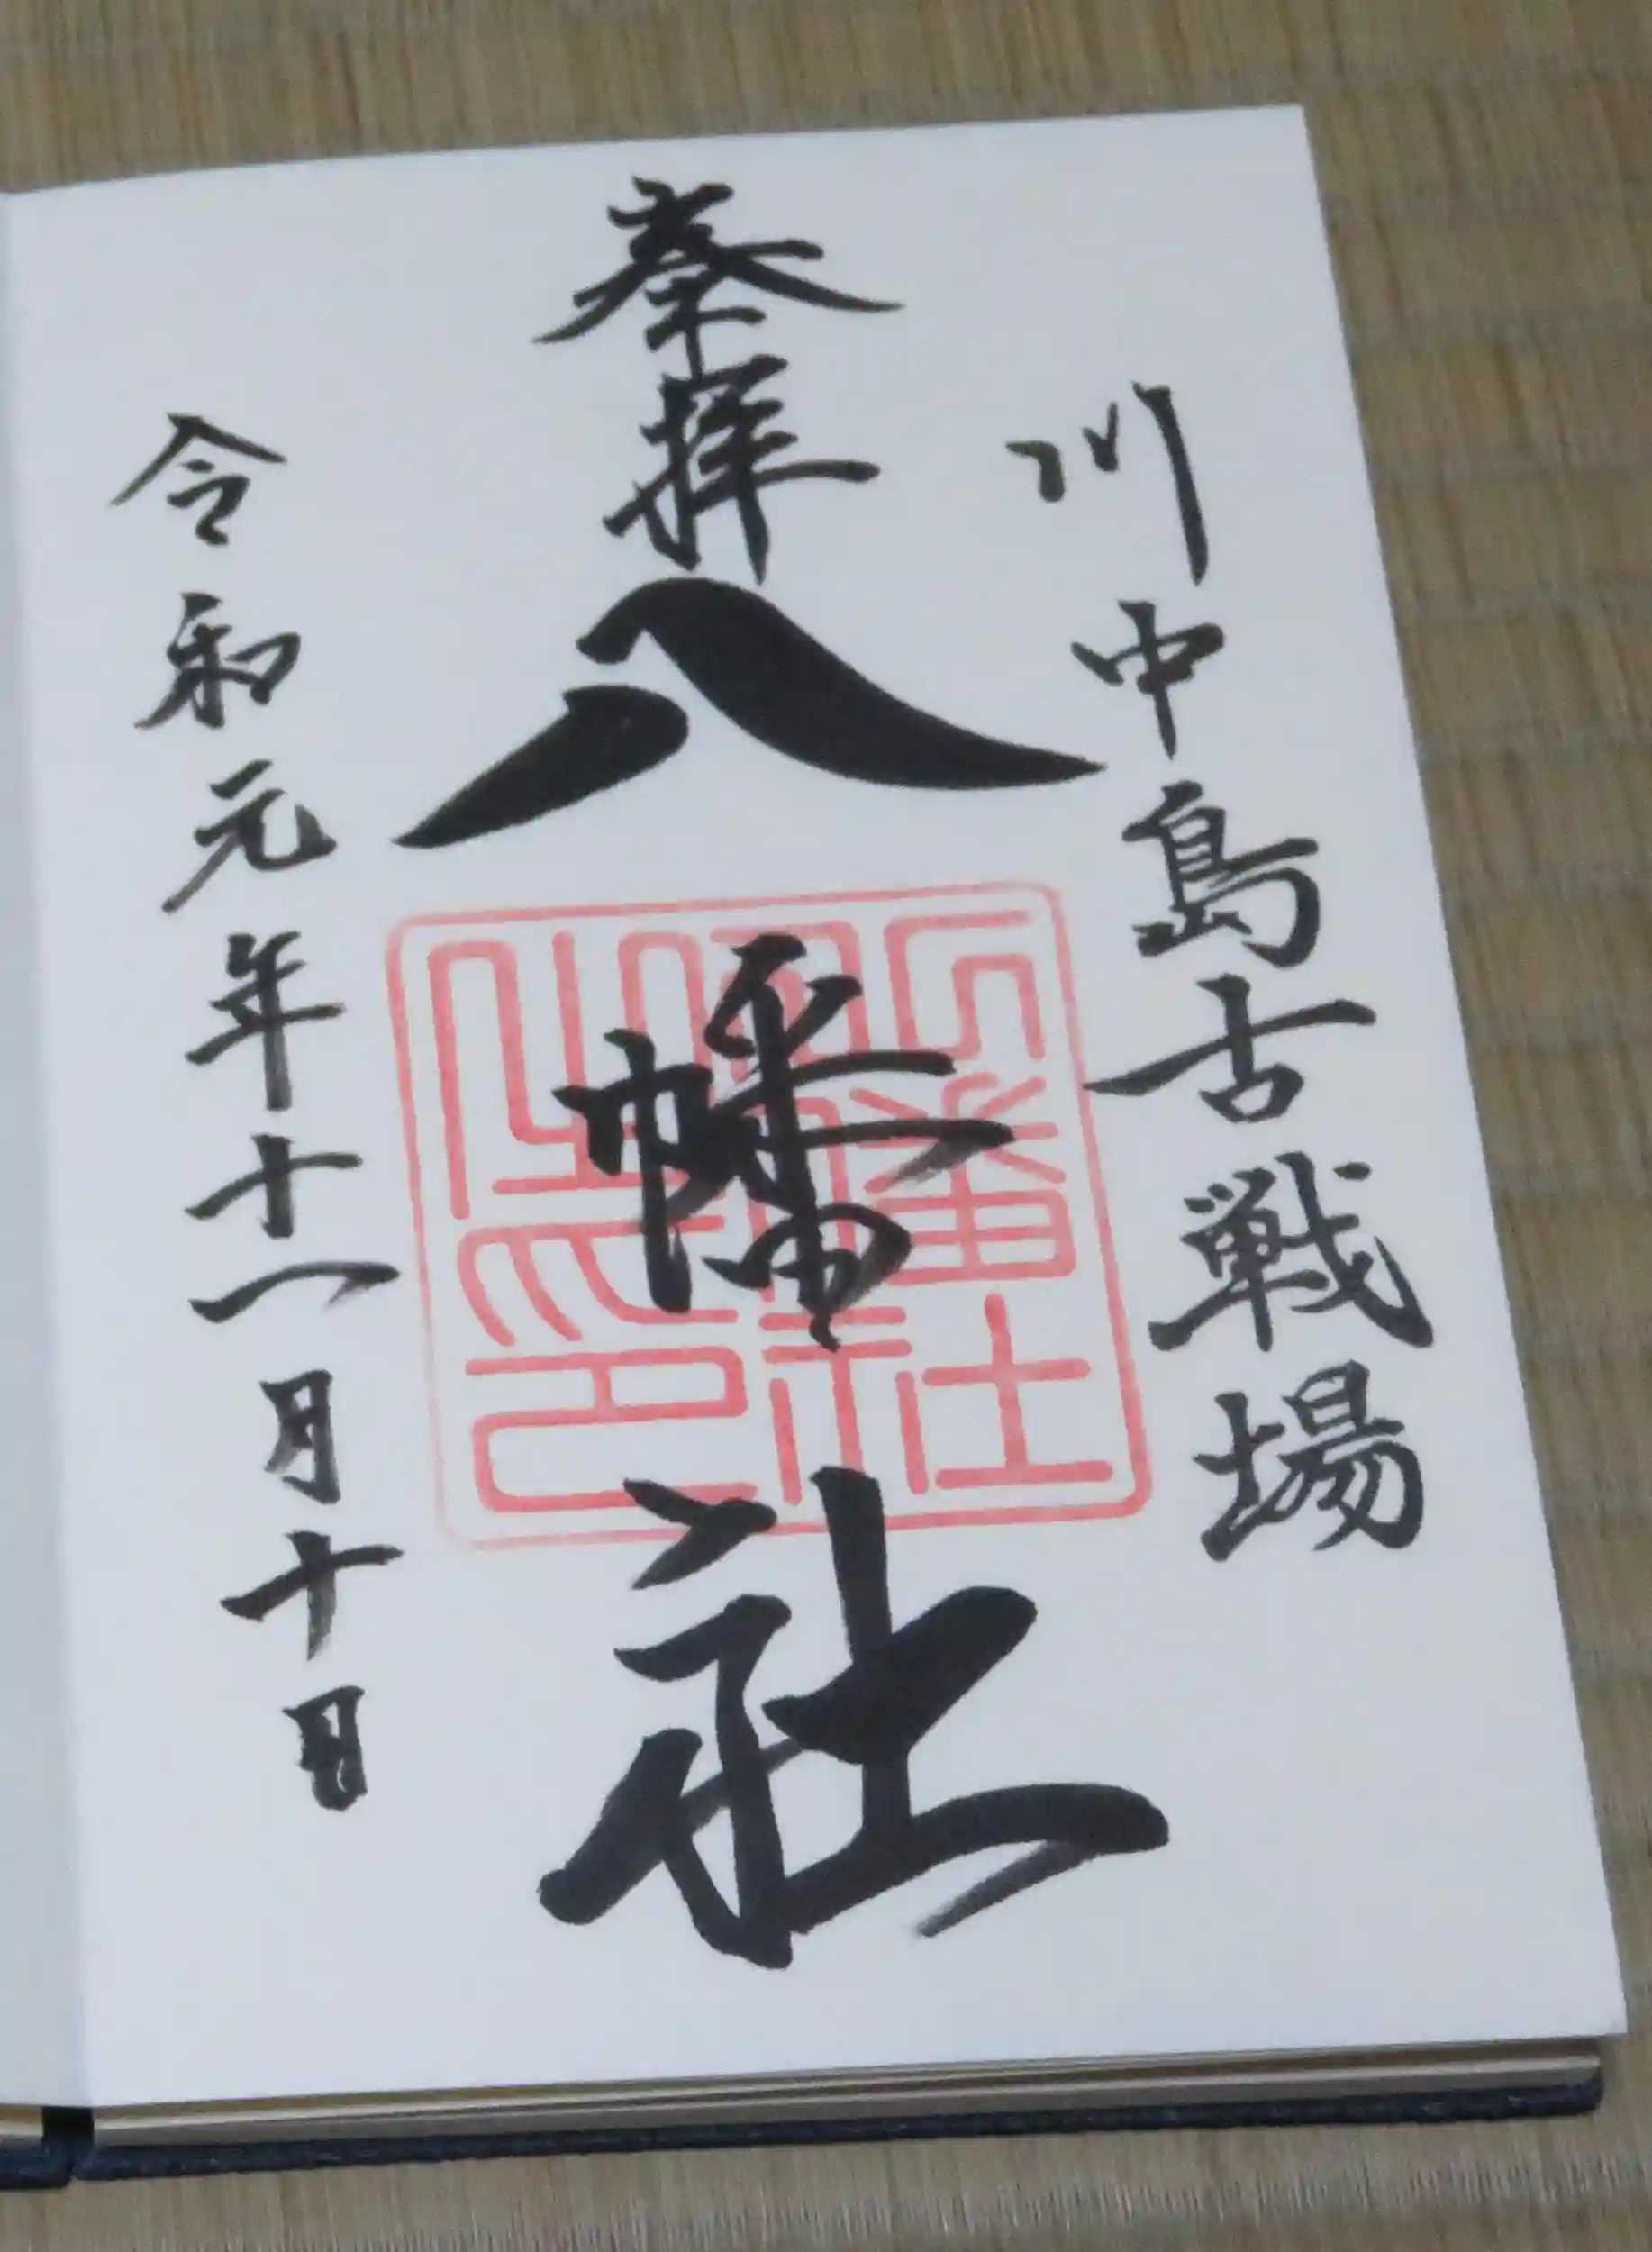 川中島古戦場
奉拝
八幡社
令和元年十一月十日